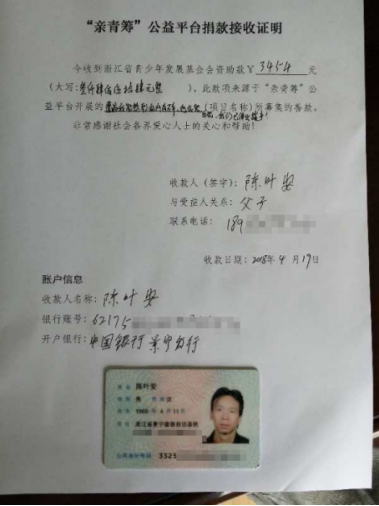 “亲青筹”公益平台捐款接收证明
今收到浙江省青少年发展基金会资助款¥3454元
(大写:叁仟肆佰伍拾肆元整),此款项来源于“亲青筹”公
益平台开展的(项目名称)所募集的善款。
非常感谢社会各界爱心人士的关心和帮助!
收款人(签字):陈叶安
与受益人关系:父子
联系电话:189
收款日期:2018年4月19日
账户信息
收款人名称:陈叶安
银行账号:62175
开户银行:中国银行景宁支行
姓名 陈叶安
性别 男 民族 汉
浙江省景宁畲族自治县
公民身份号码 3325